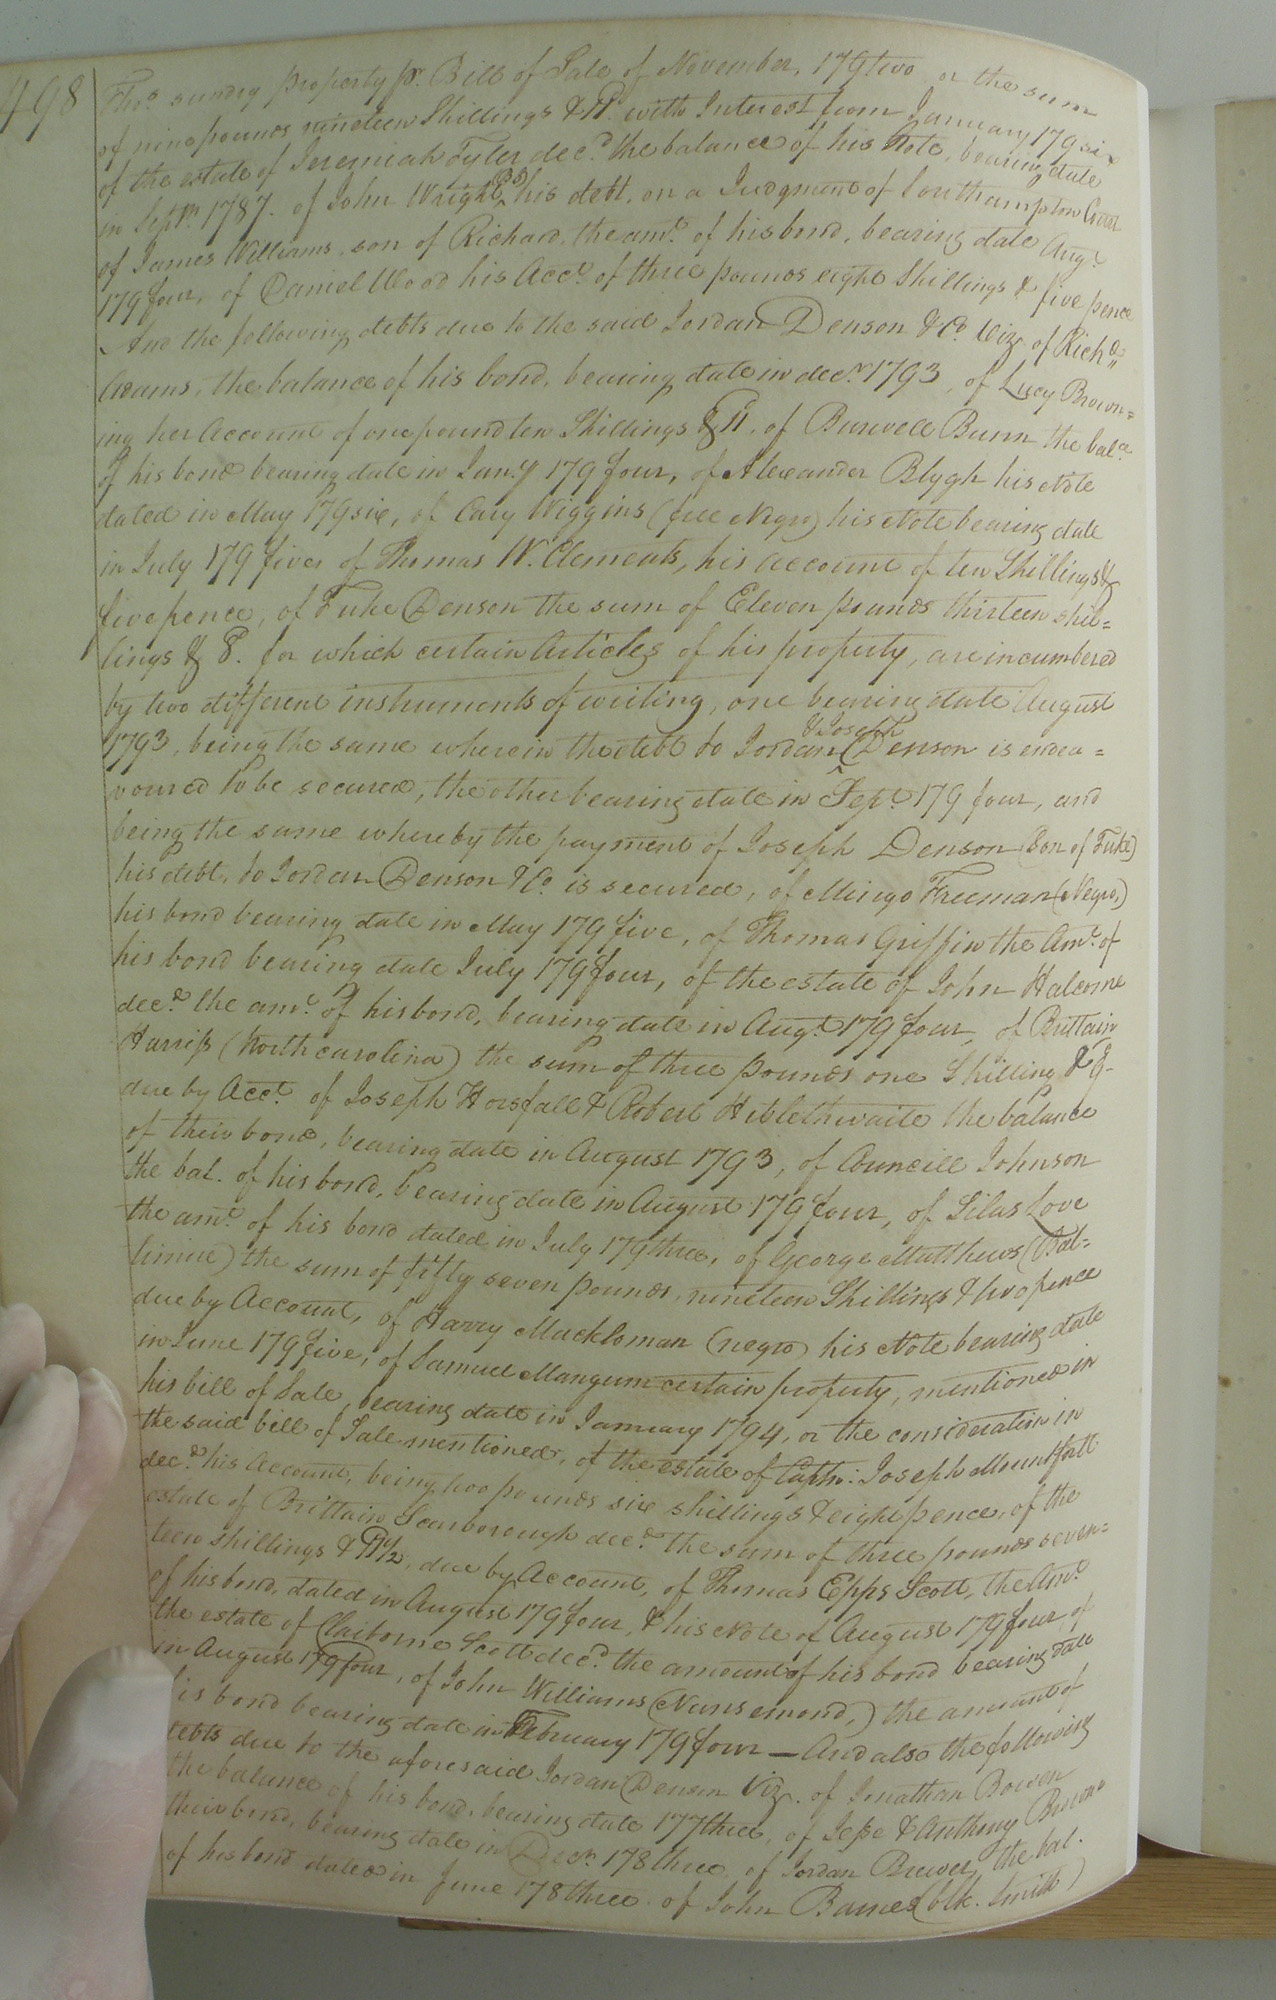 498
Thos. sundry property pr. Bill of Sale of November, 179two or the sum
of nine pounds nineteen Shillings & 11d. with Interest from January 179six
of the estate of Jeremiah Tyler decd. the balance of his Note, bearing date
in Septm. 1787. of John Wright his debt, on a Judgment of Southampton Court
of James Williams, son of Richard, the amt. of his bond, bearing date Augt.
179four, of Daniel Wood his Acct. of three pounds eight Shillings & five pence
And the following debts due to the said Jordan Denson & Co. Viz. of Richd.
Adams, the balance of his bond, bearing date in decr. 1793, of Lucy Brown=
ing her Account of one pound ten Shillings & 11, of Burwell Bunn the bale.
of his bond bearing date in Jany. 179four, of Alexander Blygh his Note
dated in May 179six, of Cary Wiggins (free Negro) his Note bearing date
in July 179five, of Thomas W. Clements, his account of ten Shillings &
five pence, of Tuke Denson the sum of Eleven pounds thirteen shil=
lings & 8. for which certain Articles of his property, are incumbered
by two different instruments of writing, one bearing date August
1793, being the same wherein the debt to Jordan & Joseph Denson is endea=
voured to be secured, the other bearing date in Sept. 179four, and
being the same whereby the payment of Joseph Denson (Son of Tuke)
his debt, to Jordan Denson & Co. is secured, of Mingo Freeman (Negro,)
his bond bearing date in May 179five, of Thomas Griffin the Amt. of
his bond bearing date July 179four, of the estate of John Halcome
decd. the amt. of his bond, bearing date in Augt. 179four, of Brittain
Harriss (North carolina) the sum of three pounds one Shilling & 9.
due by Acct. of Joseph Horsfall & Robert Hiblethwaite the balance
of their bond, bearing date in August 1793, of Councill Johnson
the bal. of his bond, bearing date in August 179four, of Silas Love
the amt. of his bond dated in July 179three, of George Matthews (Bal=
timue) the sum of fifty seven pounds, nineteen Shillings & two pence
due by Account, of Harry Mackloman (negro) his Note bearing date
in June 179five, of Samuel Mangum certain property, mentioned in
his bill of Sale, bearing date in January 1794, or the consideration in
the said bill of Sale mentioned, of the estate of Captn: Joseph Mountfort
decd. his Account, being two pounds six shillings & eight pence, of the
estate of Brittain Scarborough decd. the sum of three pounds seven=
teen shillings & 11½, due by Account, of Thomas Epps Scott, the Amt.
of his bond, dated in August 179four, & his Note of August 179four of
the estate of Claiborne Scott decd. the amount of his bond bearing date
in August 179four, of John Williams (Nansemond,) the amount of
his bond bearing date in February 179four — And also the following
debts due to the aforesaid Jordan Denson Viz. of Jonathan Bowen
the balance of his bond, bearing date 177three, of Jesse & Anthony Browne
their bond, bearing date in Decr. 178three, of Jordan Brewer, the bal.
of his bond dated in June 178three. of John Barnes (blk. Smith)